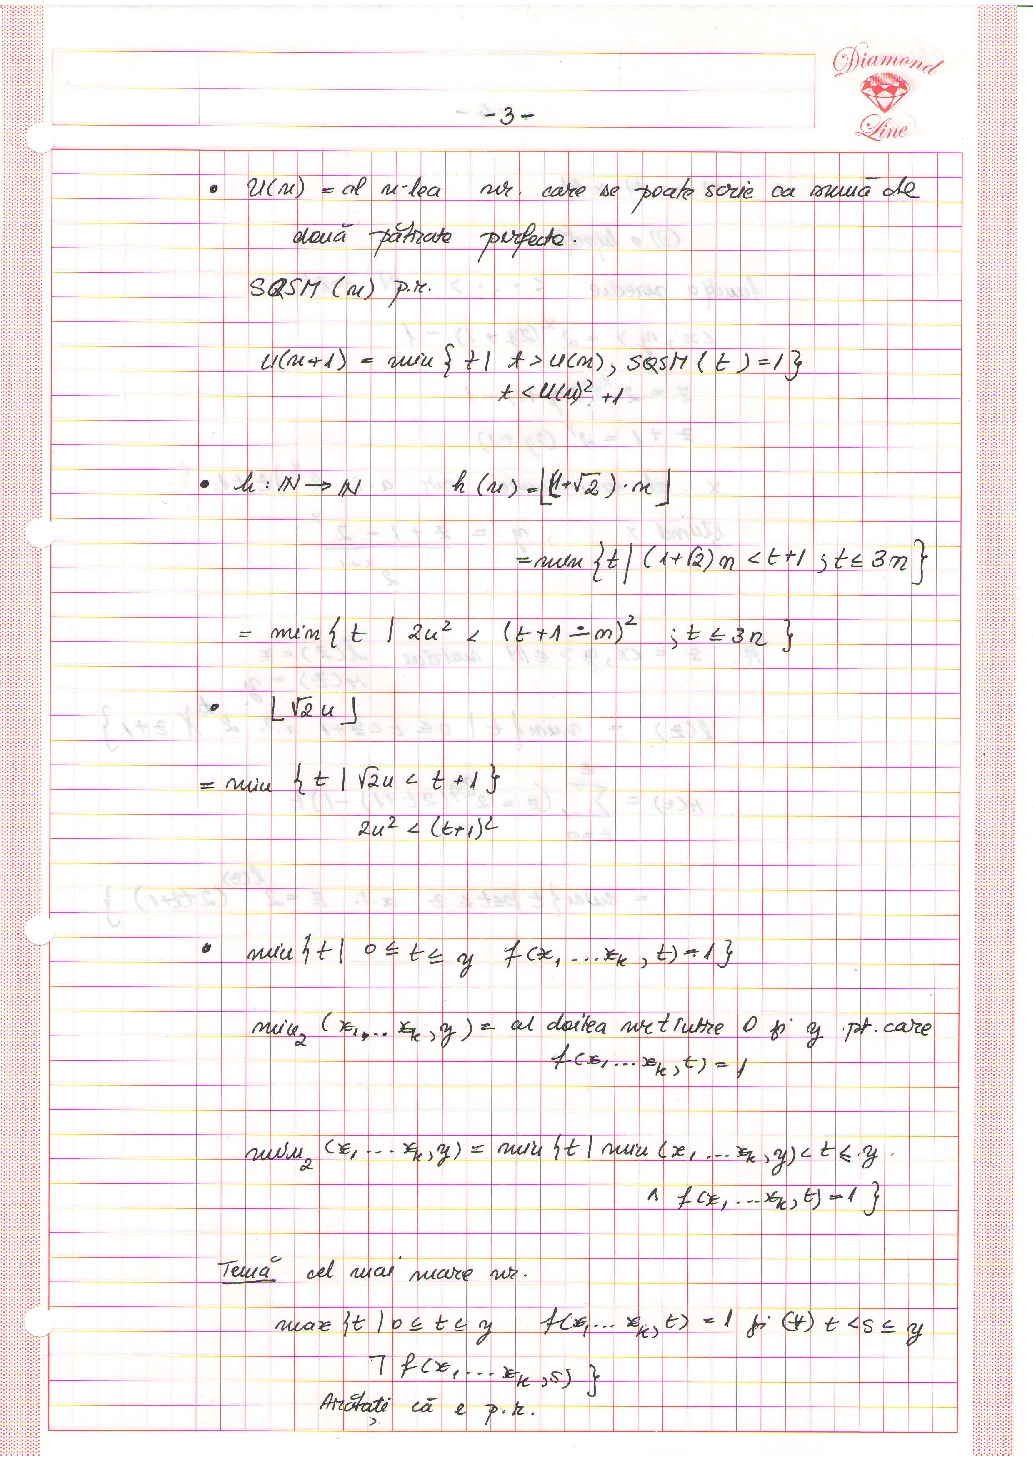 Diamond
Line
- 3 -
• U(n) = al n-lea nr. care se poate scrie ca sumă de
două pătrate perfecte.
SQSM(n) p.r.
U(n+1) = min { t | t > U(n), SQSM(t) = 1 }
t < U(n)² + 1
• h : ℕ → ℕ h(n) = ⌊(1+√2)·n⌋
= min { t | (1+√2)n < t+1 ; t ≤ 3n }
= min { t | 2n² < (t+1 ∸ n)² ; t ≤ 3n }
• ⌊√2n⌋
= min { t | √2n < t+1 }
2n² < (t+1)²
• min { t | 0 ≤ t ≤ y f(x₁ ... xₖ, t) = 1 }
min₂ (x₁, ... xₖ, y) = al doilea nr t între 0 și y pt. care
f(x₁ ... xₖ, t) = 1
min₂ (x₁, ... xₖ, y) = min { t | min (x₁ ... xₖ, y) < t ≤ y
∧ f(x₁, ... xₖ, t) = 1 }
Temă cel mai mare nr.
max { t | 0 ≤ t ≤ y f(x₁ ... xₖ, t) = 1 și (∀) t < s ≤ y
⌐ f(x₁, ... xₖ, s) }
Arătați că e p.r.